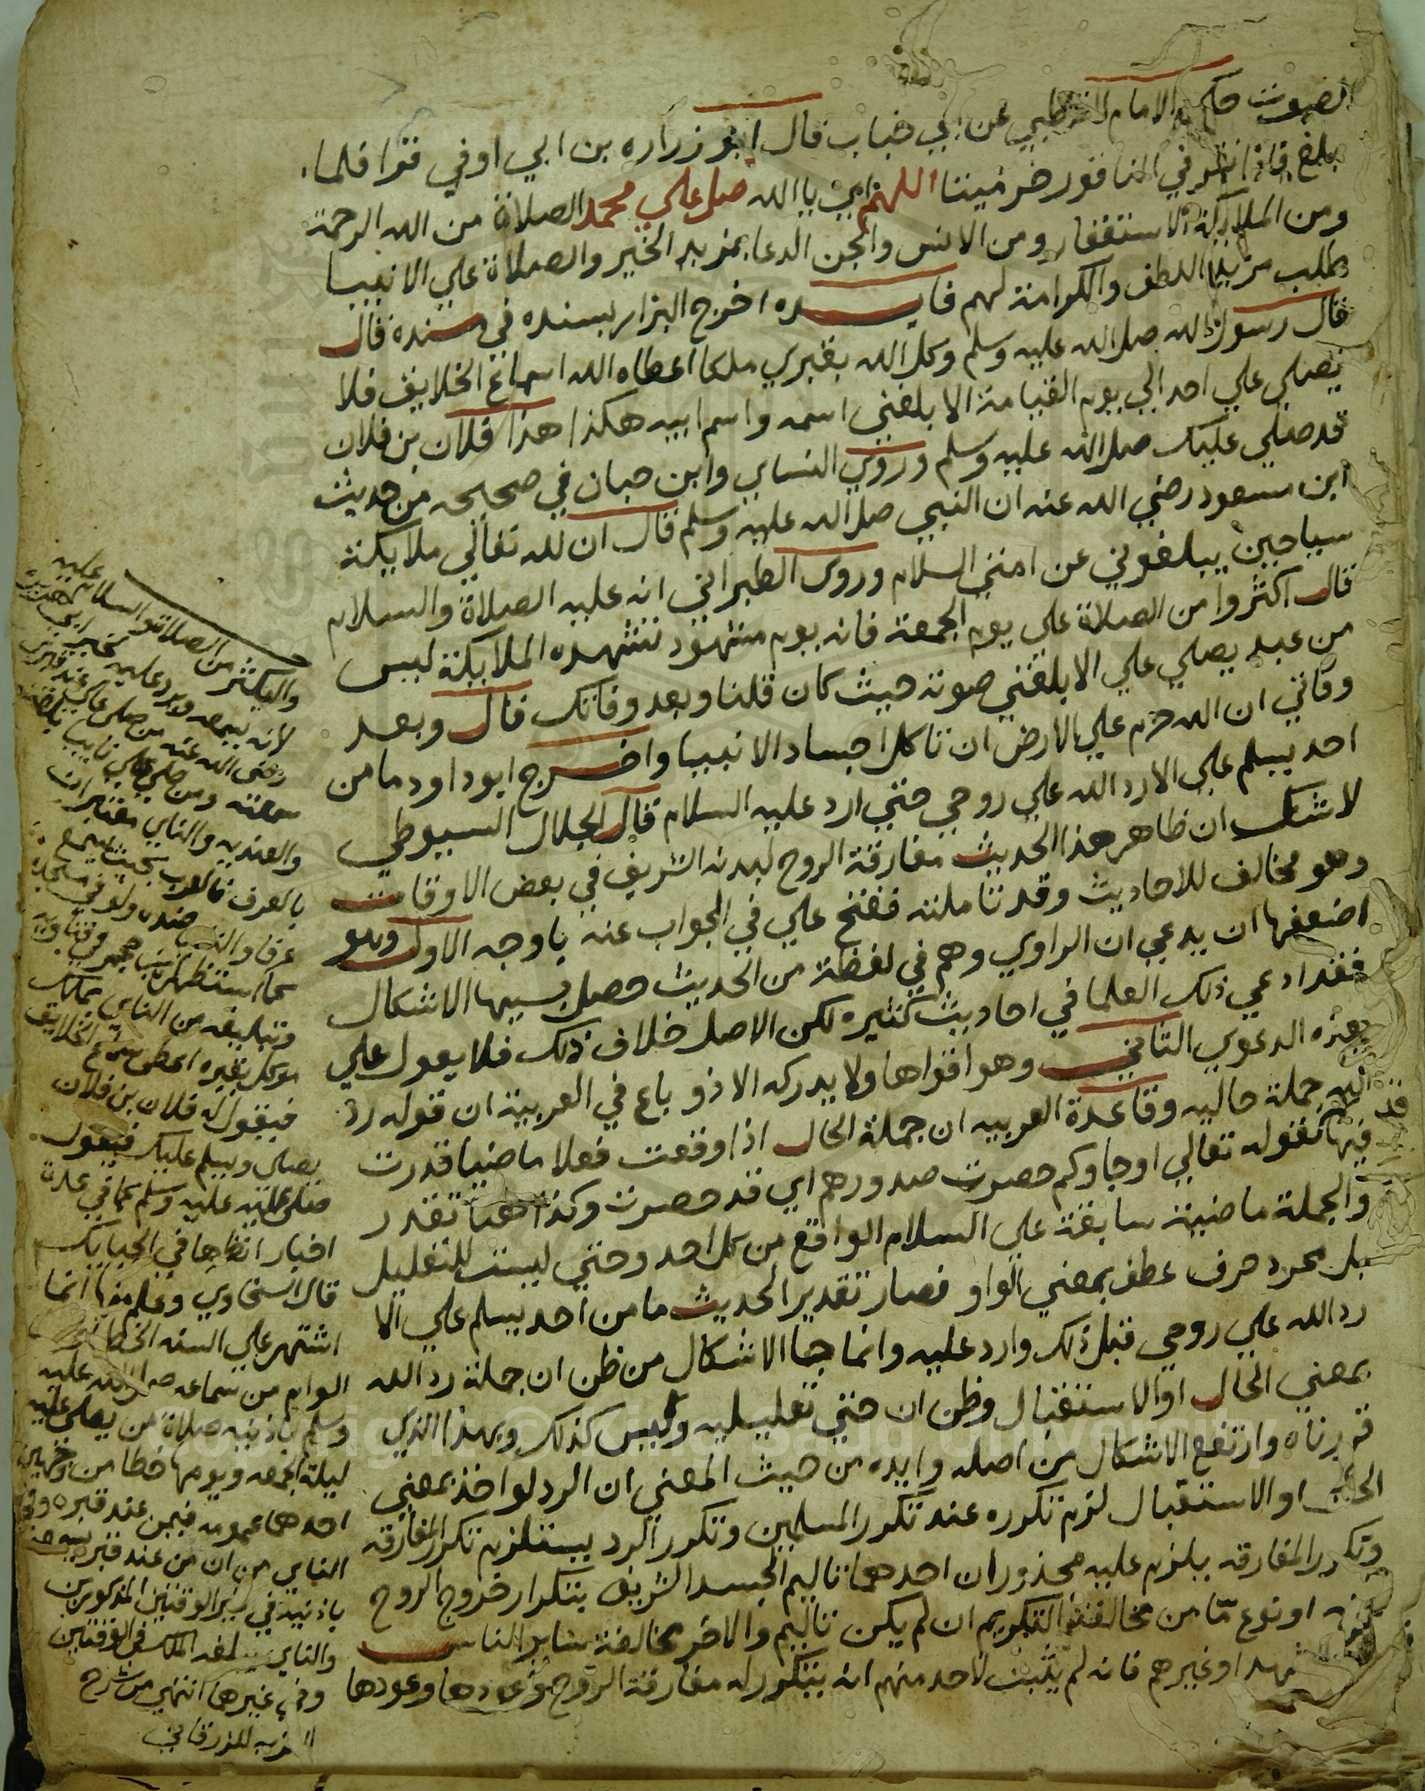 الصوت حكاه الامام القرطبي عن ابي خباب قال امنا زراره بن ابي اوفي فقرا فلما
بلغ فاذا نقر في الناقور خر ميتا اللهم اي يا الله صل علي محمد الصلاة من الله الرحمة
ومن الملايكة الاستغفار ومن الانس والجن الدعا بمزيد الخير والصلاة علي الانبيا
طلب مزيد اللطف والكرامة لهم فايــده اخرج البزار بسنده في مسنده قال
قال رسول الله صلى الله عليه وسلم وكل الله بقبري ملكا اعطاه الله اسماع الخلايق فلا
يصلي علي احد الي يوم القيامة الا بلغني اسمه واسم ابيه هكذا هذا فلان بن فلان
قد صلي عليك صلى الله عليه وسلم وروي النساي وابن حبان في صحيحه من حديث
ابن مسعود رضي الله عنه ان النبي صلى الله عليه وسلم قال ان لله تعالي ملايكة
سياحين يبلغوني عن امتي السلام وروى الطبراني انه عليه الصلاة والسلام
قال اكثروا من الصلاة علي يوم الجمعة فانه يوم مشهود تشهده الملايكة ليس
من عبد يصلي علي الا بلغني صوته حيث كان قلنا وبعد وفاتك قال وبعد
وفاتي ان الله حرم علي الارض ان تاكل اجساد الانبيا واخرج ابو داود ما من
احد يسلم علي الا رد الله علي روحي حتي ارد عليه السلام قال الجلال السيوطي
لا شك ان ظاهر هذا الحديث مفارقة الروح لبدنه الشريف في بعض الاوقات
وهو مخالف للاحاديث وقد تاملته ففتح علي في الجواب عنه باوجه الاول وهو
اضعفها ان يدعي ان الراوي وهم في لفظة من الحديث حصل بسببها الاشكال
فقد ادعي ذلك العلما في احاديث كثيره لكن الاصل خلاف ذلك فلا يعول علي
هذه الدعوي الثاني وهو اقواها ولا يدركه الا ذو باع في العربية ان قوله رد
الله جملة حاليه وقاعدة العربيه ان جملة الحال اذا وقعت فعلا ماضيا قدرت قد
فيها كقوله تعالي او جاوكم حصرت صدورهم اي قد حصرت وكذا هنا تقدر
والجملة ماضية سابقة علي السلام الواقع من كل احد وحتي ليست للتعليل
بل مجرد حرف عطف بمعني الواو فصار تقدير الحديث ما من احد يسلم علي الا
رد الله علي روحي قبل ذلك وارد عليه وانما جا الاشكال من ظن ان جملة رد الله
بمعني الحال او الاستقبال وظن ان حتي تعليليه وليس كذلك وبهذا الذي
قررناه وارتفع الاشكال من اصله وايده من حيث المعني ان الرد لو اخذ بمعني
الحال او الاستقبال لزم تكرره عند تكرر المسلمين وتكرر الرد يستلزم تكرر المفارقه
وتكرر المفارقه يلزم عليه محذوران احدهما تاليم الجسد الشريف بتكرار خروج الروح
او نوع ما من مخالفة التكريم ان لم يكن تاليم والاخر مخالفة ساير الناس
شهدا وغيرهم فانه لم يثبت لاحد منهم انه يتكرر له مفارقة الروح وعودها
واليكثر من الصلاة والسلام عليه
لانه يسمعه ويرد عليه
رضي الله عنه من صلى علي عند قبري
سمعته ومن صلي علي نايبا بلغته
والعنديه والناي معتبران
بالعرف فالقرب بحيث يسمع
عرفا
وتبليغه من الناي ملك
موكل بقبره اعطى سماع الخلايق
فيقول له فلان بن فلان
يصلى ويسلم عليك فيقول
صلى الله عليه وسلم كما في عدة
اخبار انظرها في الحبايك
قال السخاوي وعلم منها انما
اشتهر علي السنه الخطبا
العوام من سماعه صلى الله عليه
وسلم باذنيه صلاة من يصلى عليه
ليلة الجمعه ويومها خطا من وجهين
احدهما عمومه فيمن عند قبره وفي
الناي مع ان من عند قبره يسمعه
باذنيه في غير الوقتين المذكورين
والناي يبلغه الملك في الوقتين
وفي غيرها انتهي من شرح
للزرقاني